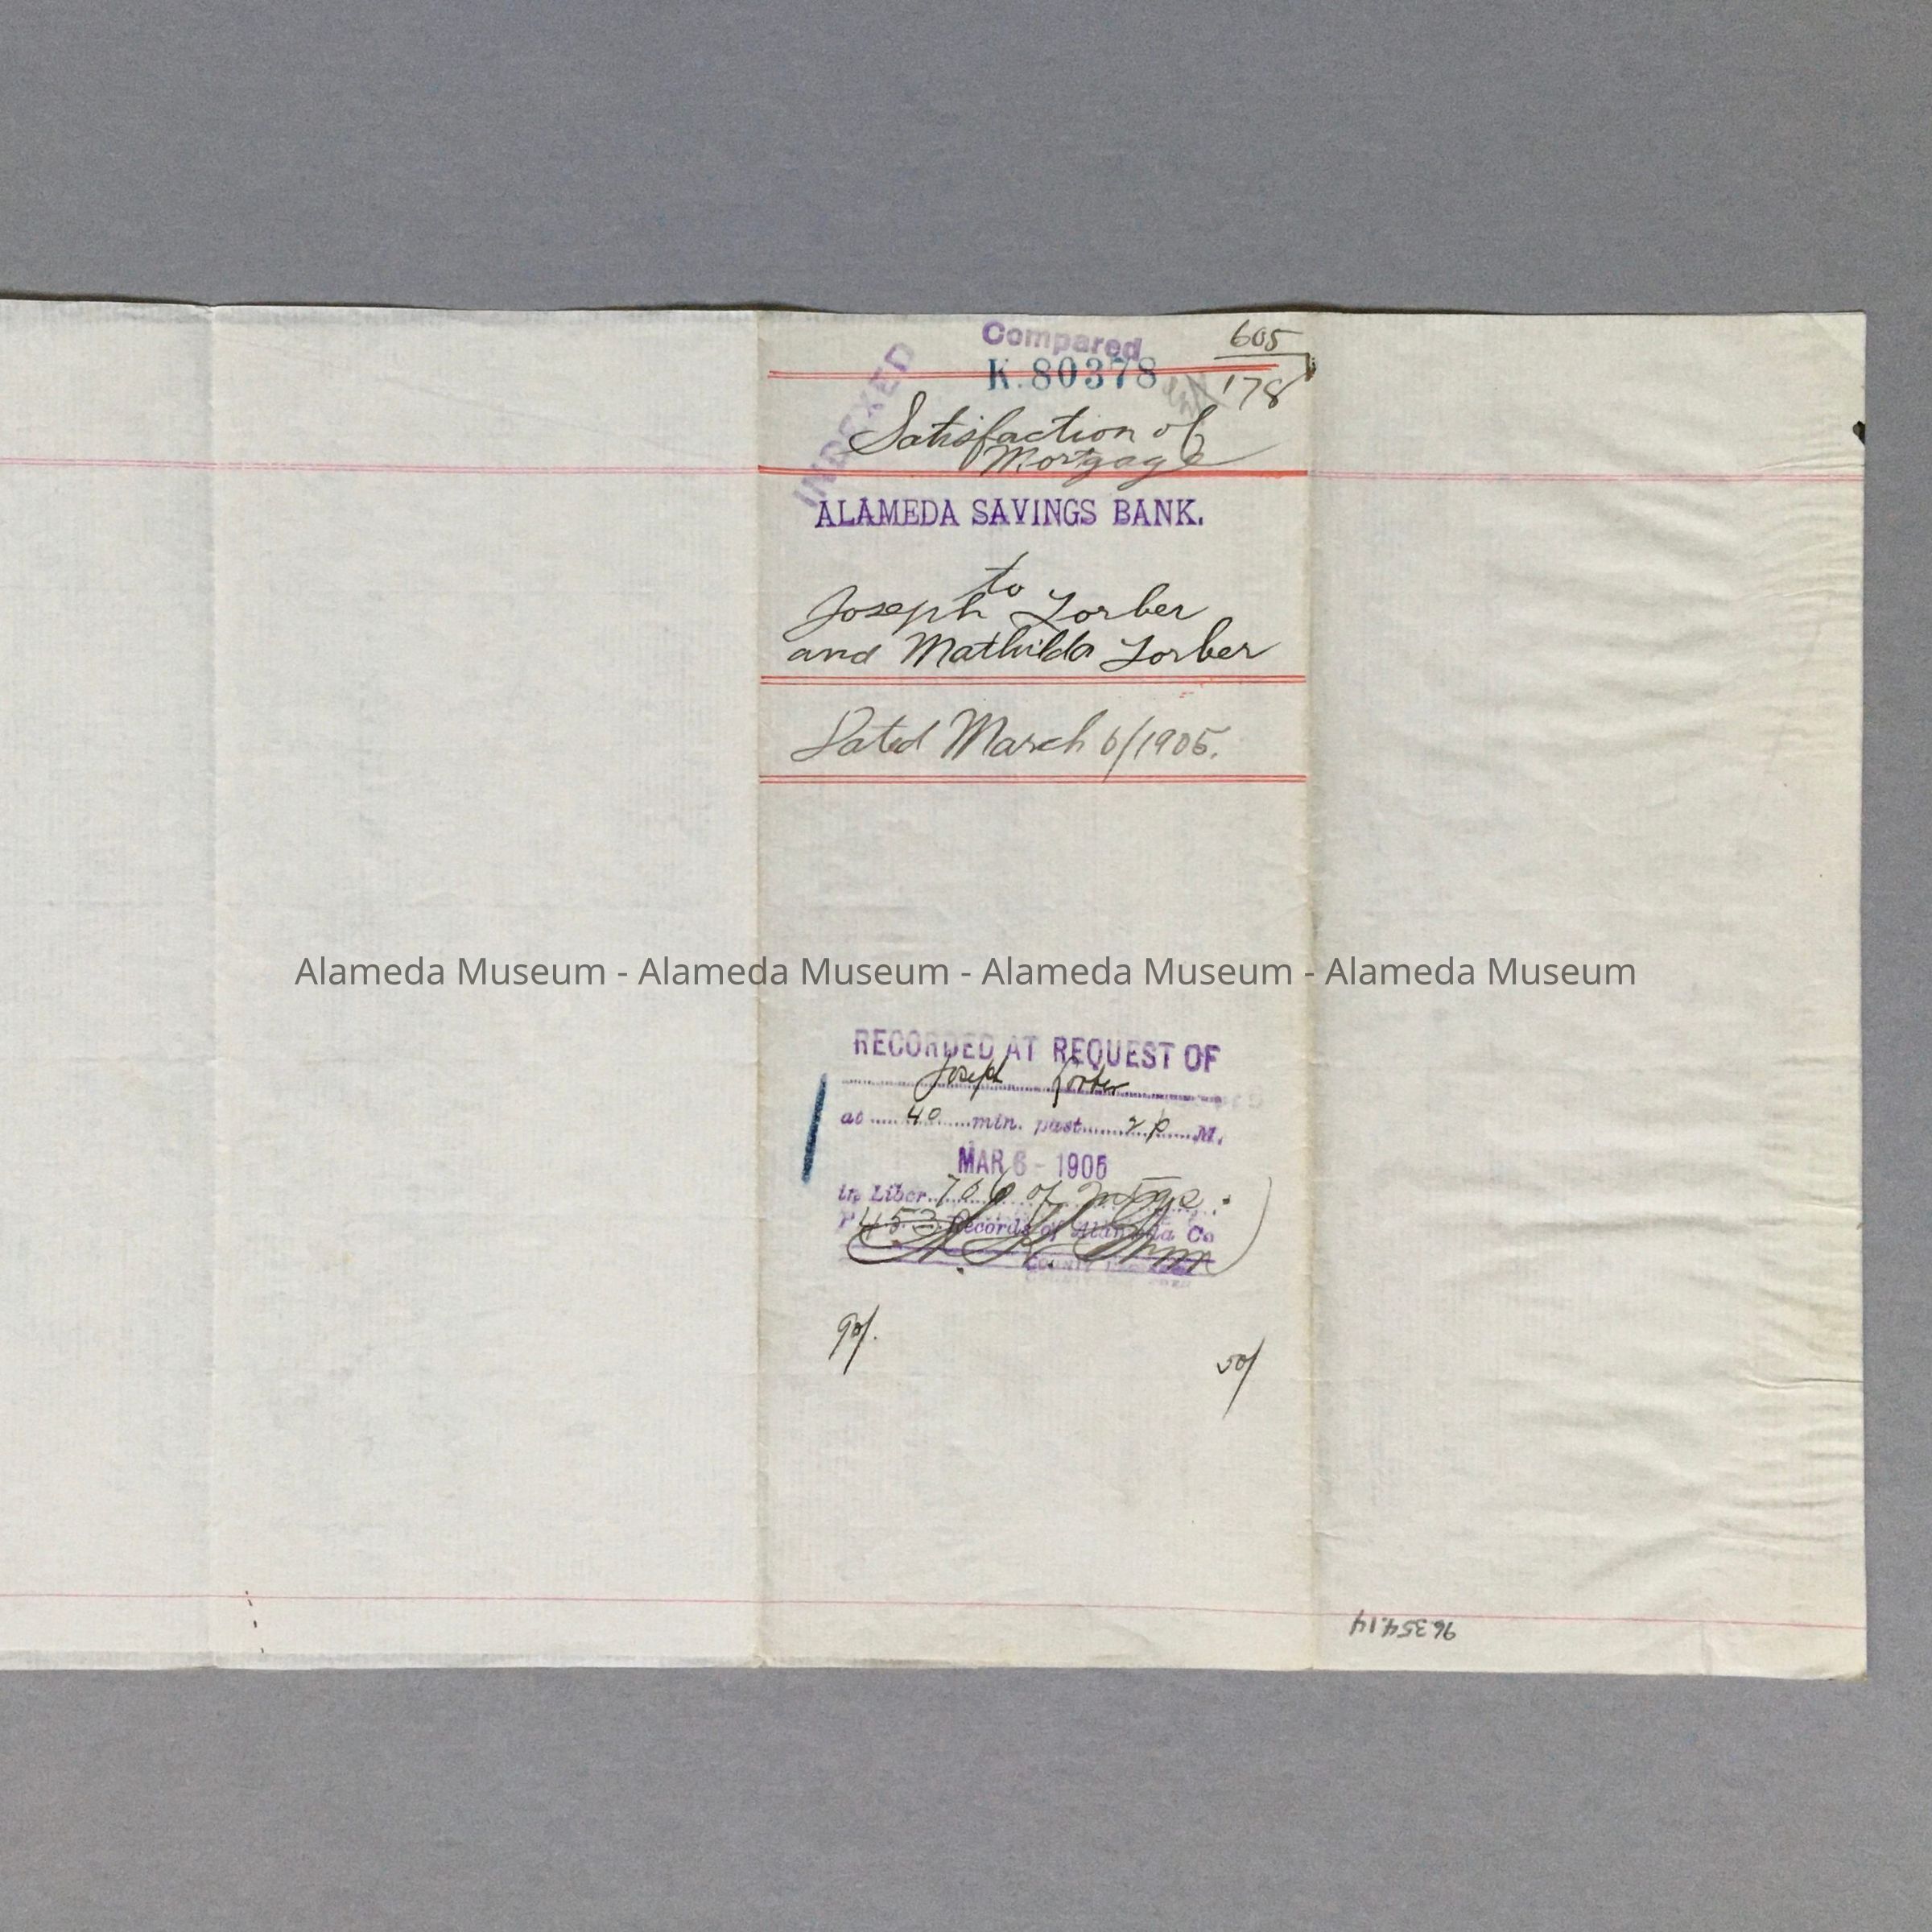 Compared
605
K.80378
178
INDEXED
Satisfaction of
Mortgage
ALAMEDA SAVINGS BANK.
to
Joseph Lorber
and Mathilda Lorber
Dated March 6/1905.
Alameda Museum - Alameda Museum - Alameda Museum - Alameda Museum
RECORDED AT REQUEST OF
Joseph Lorber
at 40 min. past 2 P M.
MAR 6 - 1905
in Liber 766 of Mtge.
P 453 Records of Alameda Co
COUNTY
90/.
50/
96.354.14